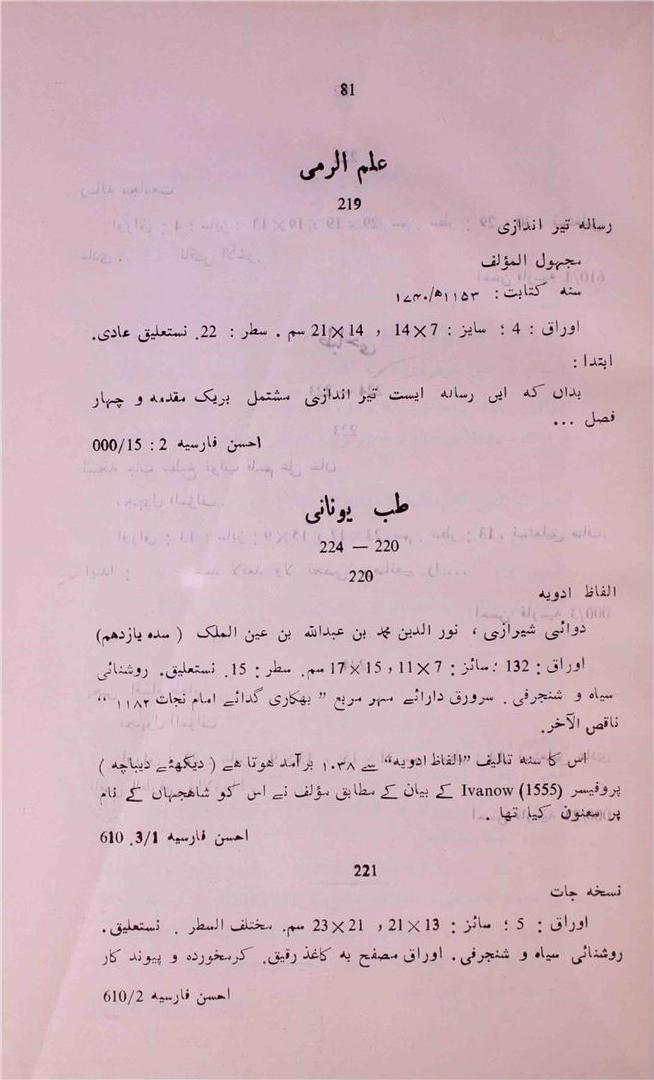 81
علم الرمی
219
رسالہ تیر اندازی
مجہول المؤلف
سنہ کتابت : ۱۱۵۳ھ/۱۷۴۰
اوراق : 4 ؛ سایز : 7×14 , 14×21 سم . سطر : 22. نستعلیق عادی.
ابتدا :
بداں کہ ایں رسالہ ایست تیر اندازی مشتمل بریک مقدمہ و چہار
فصل ...
احسن فارسیہ 2 : 000/15
طب یونانی
220 — 224
220
الفاظ ادویہ
دوائی شیرازی ، نور الدین محمد بن عبداللہ بن عین الملک ( سدہ یازدهم)
اوراق : 132 ؛ سائز : 7×11 , 15×17 سم. سطر : 15. نستعلیق. روشنائی
سیاہ و شنجرفی . سرورق دارائے مہر مربع ” بھکاری گدائے امام نجات ۱۱۸۲ “
ناقص الآخر.
اس کا سنہ تالیف ”الفاظ ادویہ“ سے ۱۰۳۸ برآمد ہوتا ہے ( دیکھئے دیباچہ )
پروفیسر Ivanow (1555) کے بیان کے مطابق مؤلف نے اس کو شاهجہاں کے نام
پر معنون کیا تھا .
احسن فارسیہ 3/1. 610
221
نسخہ جات
اوراق : 5 ؛ سائز : 13×21 , 21×23 سم. مختلف السطر . نستعلیق.
روشنائی سیاہ و شنجرفی. اوراق مصفح به کاغذ رقیق. کرمخورده و پیوند کار
احسن فارسیہ 610/2